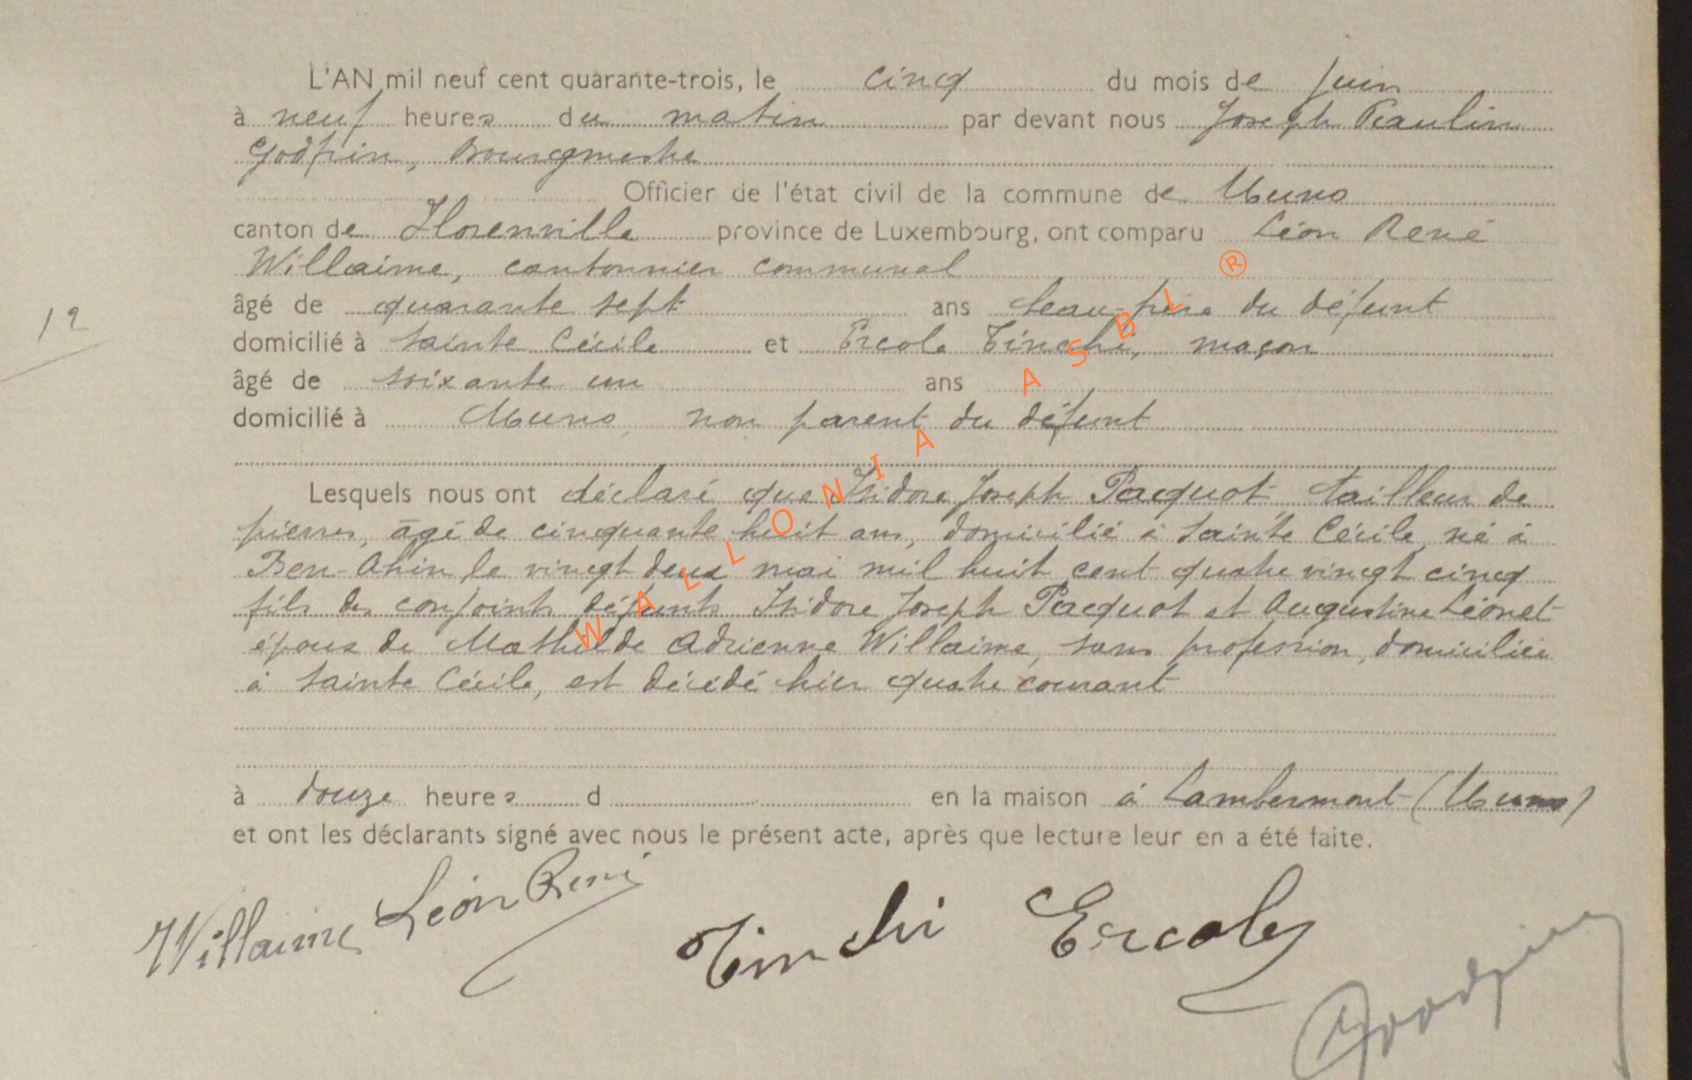 L'AN mil neuf cent quarante-trois, le cinq du mois de juin
à neuf heures du matin par devant nous Joseph Paulin
Godfrin, Bourgmestre
Officier de l'état civil de la commune de Muno
canton de Florenville province de Luxembourg, ont comparu Léon René
Willaime, cantonnier communal
12
âgé de quarante sept ans beau-frère du défunt
domicilié à Sainte Cécile et Ercole Tinchi, maçon
âgé de soixante un ans
domicilié à Muno, non parent du défunt
Lesquels nous ont déclaré que Isidore Joseph Pacquot tailleur de
pierres, âgé de cinquante huit ans, domicilié à Sainte Cécile, né à
Ben-Ahin, le vingt deux mai mil huit cent quatre vingt cinq
fils des conjoints défunts Isidore Joseph Pacquot et Augustine Léonet
époux de Mathilde Adrienne Willaime, sans profession, domiciliée
à Sainte Cécile, est décédé hier quatre courant
à douze heures d en la maison à Lambermont (Muno)
et ont les déclarants signé avec nous le présent acte, après que lecture leur en a été faite.
Willaime Léon René
Tinchi Ercole
Godfrin
WALLONIA ASBL ®